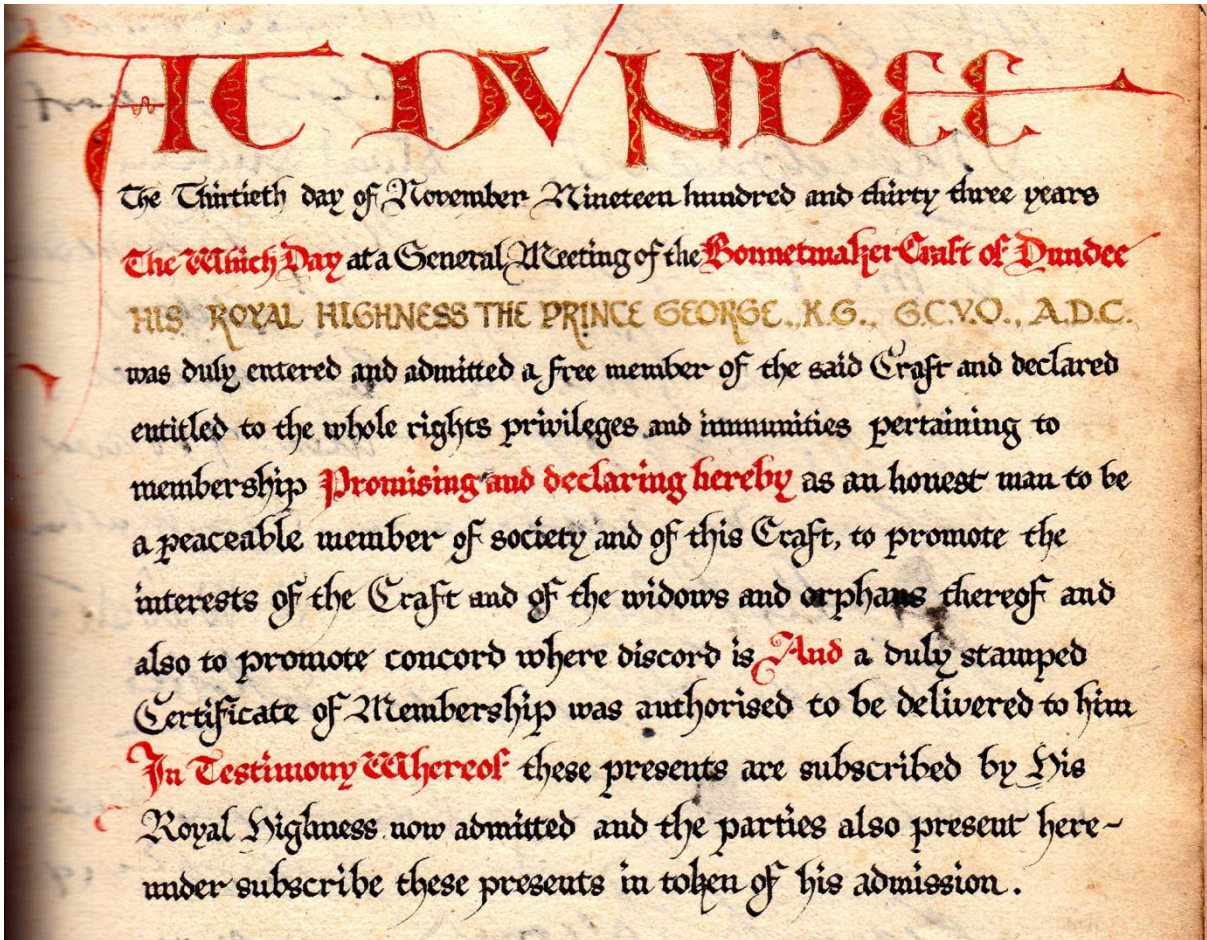 AT DUNDEE
The Thirtieth day of November Nineteen hundred and thirty three years
The Which Day at a General Meeting of the Bonnetmaker Craft of Dundee
HIS ROYAL HIGHNESS THE PRINCE GEORGE., K.G., G.C.V.O., A.D.C.
was duly entered and admitted a free member of the said Craft and declared
entitled to the whole rights privileges and immunities pertaining to
membership Promising and declaring hereby as an honest man to be
a peaceable member of society and of this Craft, to promote the
interests of the Craft and of the widows and orphans thereof and
also to promote concord where discord is And a duly stamped
Certificate of Membership was authorised to be delivered to him
In Testimony Whereof these presents are subscribed by His
Royal Highness now admitted and the parties also present here-
under subscribe these presents in token of his admission.